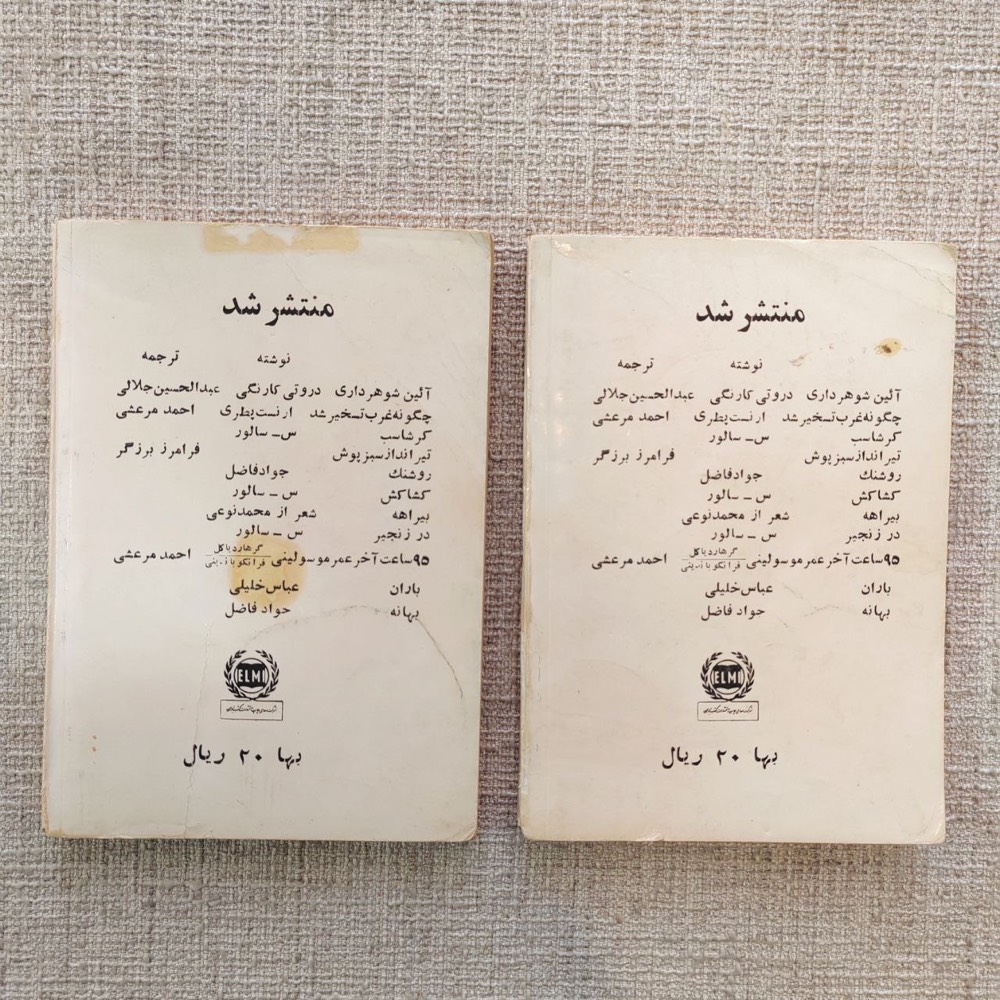 منتشر شد
نوشته ترجمه
آئین شوهرداری دروتی کارنگی عبدالحسین جلالی
چگونه غرب تسخیر شد ارنست پطری احمد مرعشی
کرشاسب س ــ سالور
تیرانداز سبزپوش فرامرز برزگر
روشنك جواد فاضل
کشاکش س ــ سالور
بیراهه شعر از محمد نوعی
در زنجیر س ــ سالور
۹۵ ساعت آخر عمر موسولینی گرهارد یاکل فرانکو احمد مرعشی
باران عباس خلیلی
بهانه جواد فاضل
ELMI
بها ۲۰ ریال
منتشر شد
نوشته ترجمه
آئین شوهرداری دروتی کارنگی عبدالحسین جلالی
چگونه غرب تسخیر شد ارنست پطری احمد مرعشی
کرشاسب س ــ سالور
تیرانداز سبزپوش فرامرز برزگر
روشنك جواد فاضل
کشاکش س ــ سالور
بیراهه شعر از محمد نوعی
در زنجیر س ــ سالور
۹۵ ساعت آخر عمر موسولینی گرهارد یاکل فرانکو احمد مرعشی
باران عباس خلیلی
بهانه حواد فاضل
ELMI
بها ۲۰ ریال